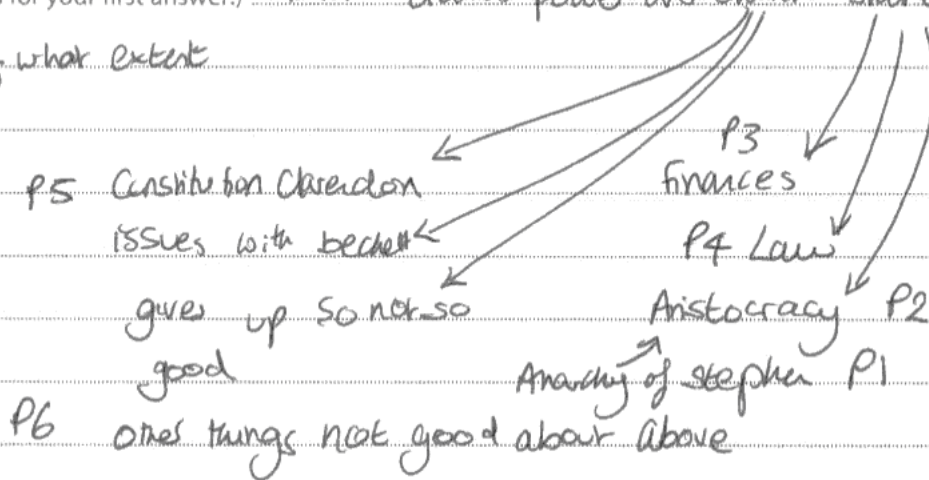 for your first answer.)
what extent
P3
finances
P5 Constitution Clarendon
issues with beckett
P4 Law
gives up so not so
good
Aristocracy P2
Anarchy of stephen P1
P6 other things not good about above